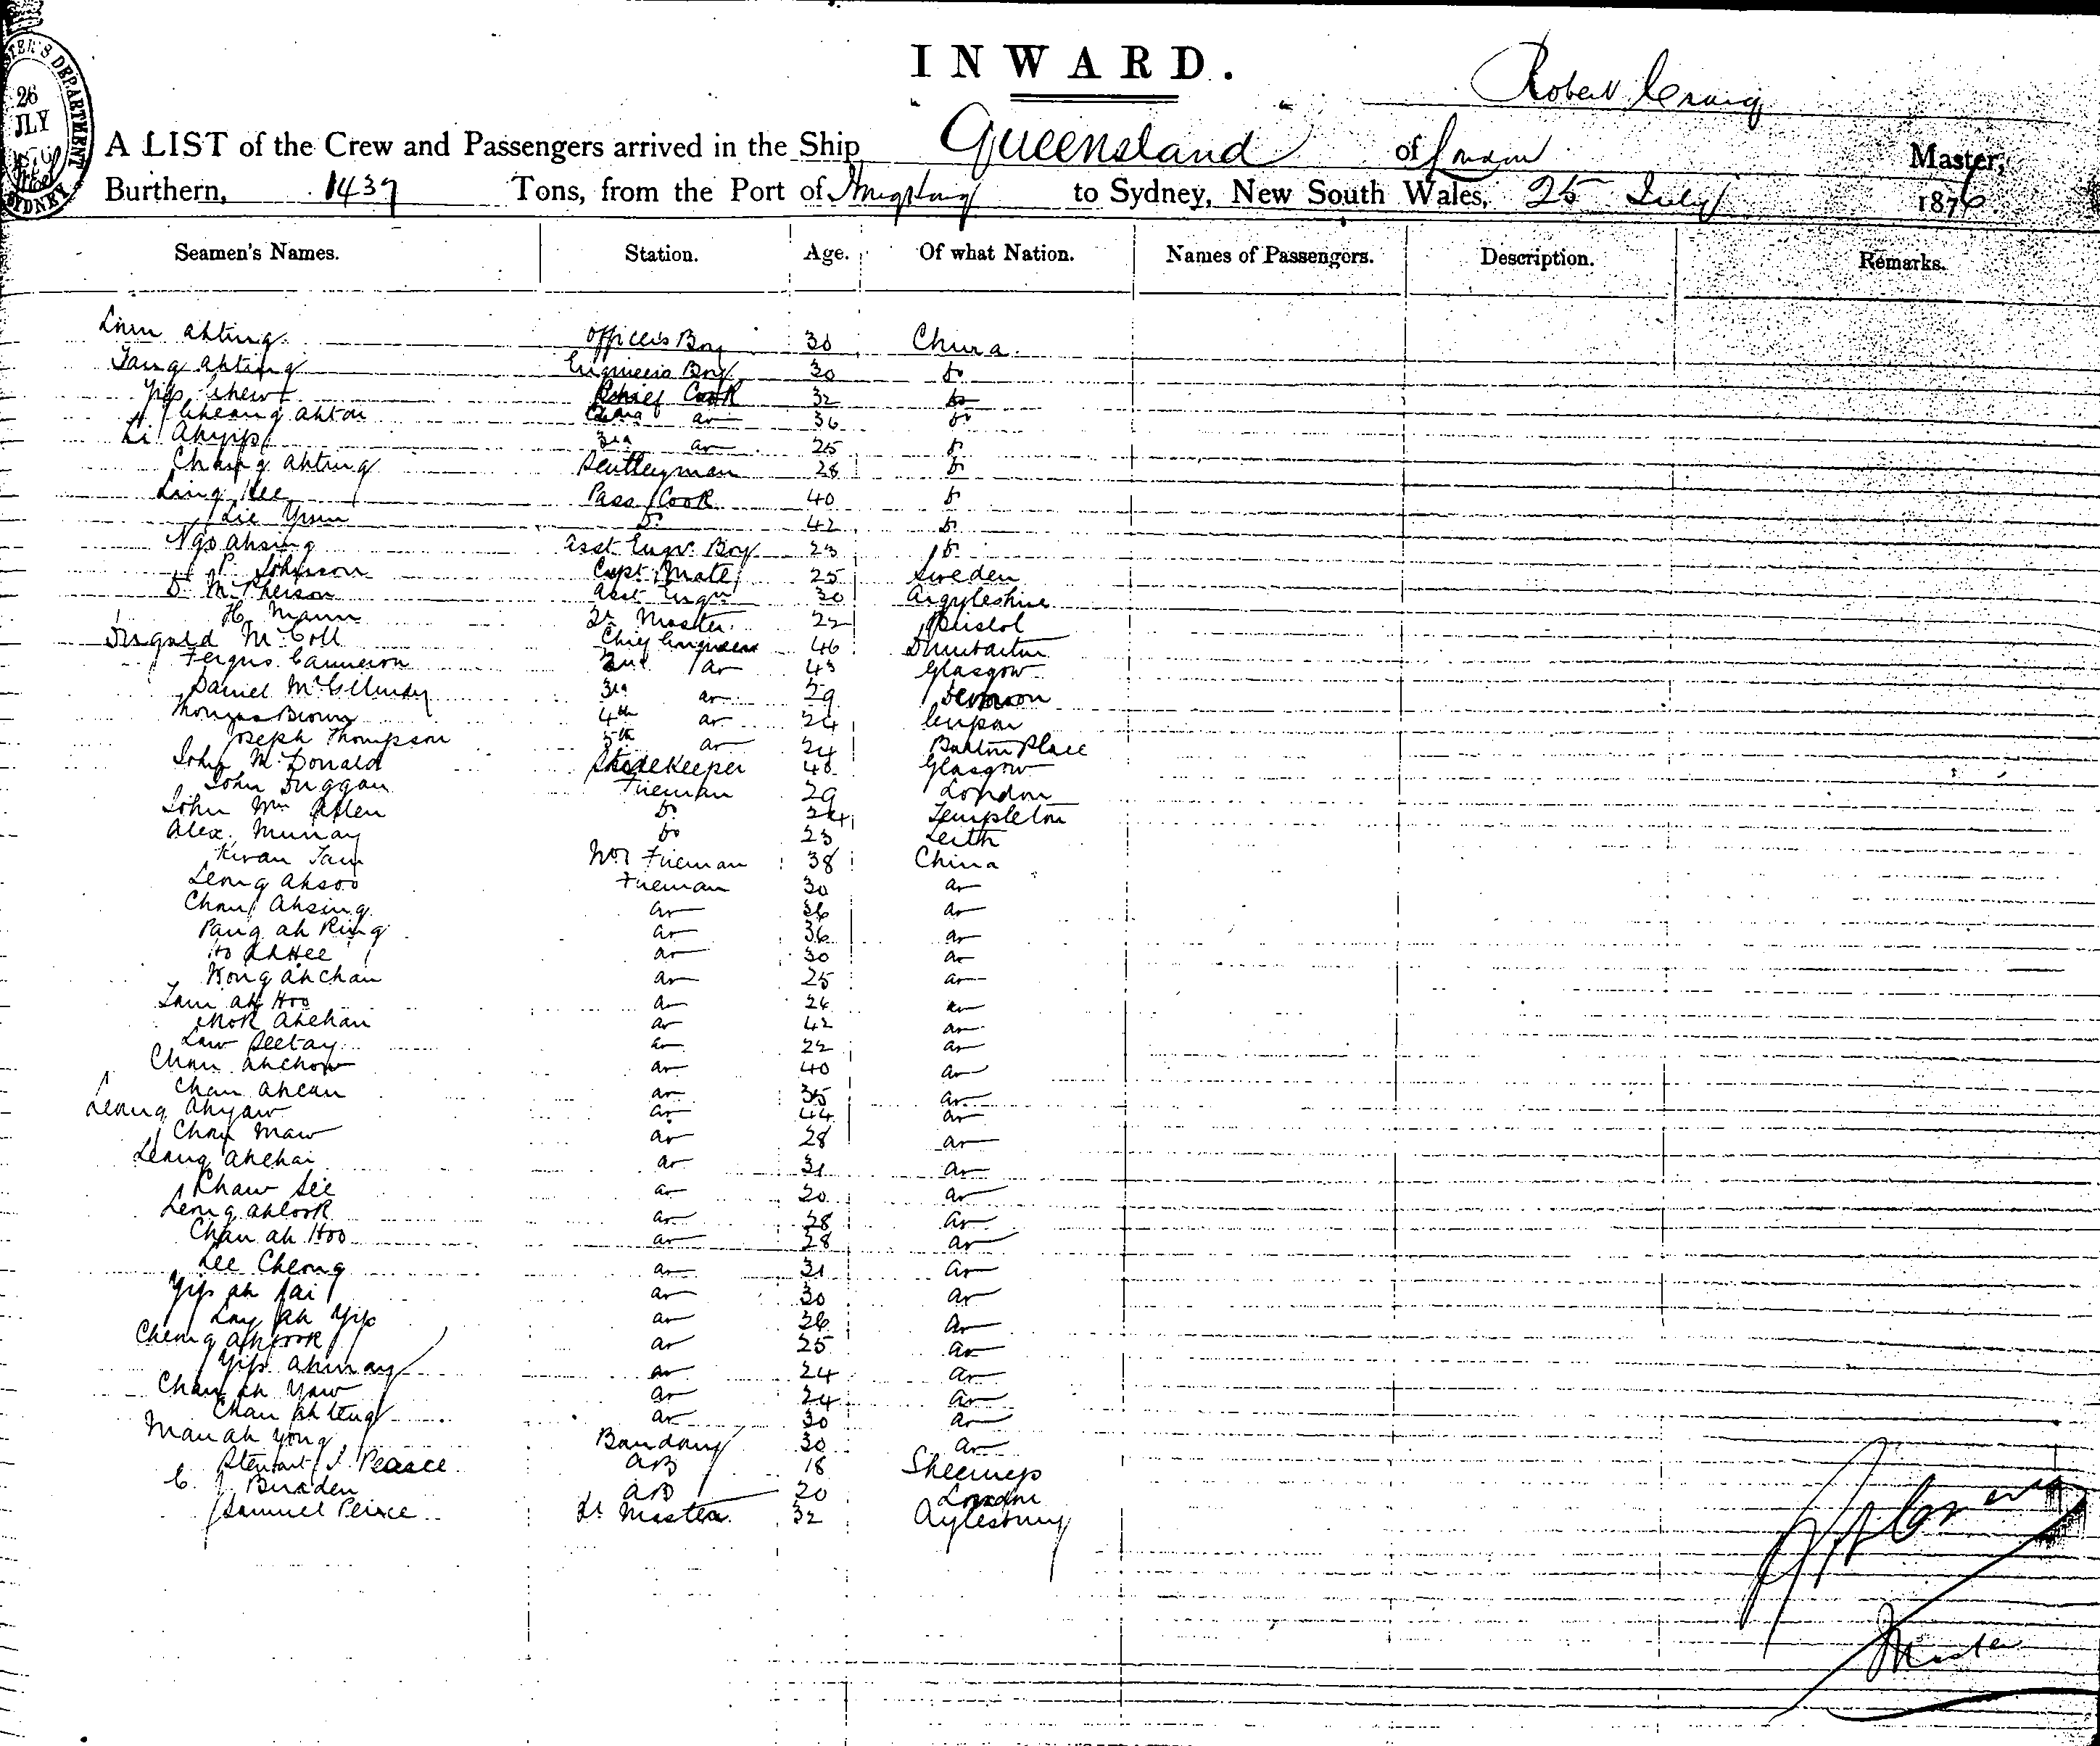 INWARD.
Robert Craig
A LIST of the Crew and Passengers arrived in the Ship Queensland of London Master,
Burthern, 1439 Tons, from the Port of Hongkong to Sydney, New South Wales, 25 July 1876
Seamen's Names. Station. Age. Of what Nation. Names of Passengers. Description. Remarks.
26
JLY
SYDNEY
Ahting Officers Boy 30 China
Ahting Engineers Boy 30 do
Yip Chew Chief Cook 32 do
Cheang Ahtai 36 do
Li Ahyip 3rd do 25 do
Chang Ahting 28 do
Ling Kee Pass Cook 40 do
Lie Do 42 do
Ngo Ahsing Asst Engr Boy 23 do
P. Johnson Mate 25 Sweden
D. McPherson Asst Engr 30 Argyleshire
H. Mann Qr Master 22 Bristol
Dugald McColl Chief Engineer 46 Dumbarton
Fergus Cameron 2nd do 43 Glasgow
Daniel 3rd do 29
Thomas Brown 4th do 24 Cupar
Joseph Thompson 5th do 24 Place
John McDonald Storekeeper 40 Glasgow
John Duggan Fireman 29 London
John Wm Allen Do 24 Templeton
Alex. Murray Do 23 Leith
Kwan Tam No 1 Fireman 38 China
Leong Ahsoo Fireman 30 do
Chan Ahsing do 36 do
Pang ah King do 36 do
Ho Ah Hee do 30 do
Kong Ah Chan do 25 do
ah Hoo do 26 do
Mok Ahchan do 42 do
Law Seetay do 22 do
Chan Ahchow do 40 do
Chan Ahcan do 35 do
Leang Ahyaw do 44 do
Choy Maw do 28 do
Leang Ahchai do 31 do
Chaw See do 20 do
Leong Ahlook do 28 do
Chan ah Hoo do 28 do
Lee Cheong do 31 do
Yip ah Sai do 30 do
Lay Ah Yip do 26 do
Cheong do 25 do
Yip Ahmay do 24 do
Chan ah Yaw do 24 do
Chan Ah teng do 30 do
Man ah Yong 30 do
Stewart J. Pearce AB 18 Sheerness
C. J. Burden AB 20 London
Samuel Peirce Qr Master 32 Aylesbury
Master